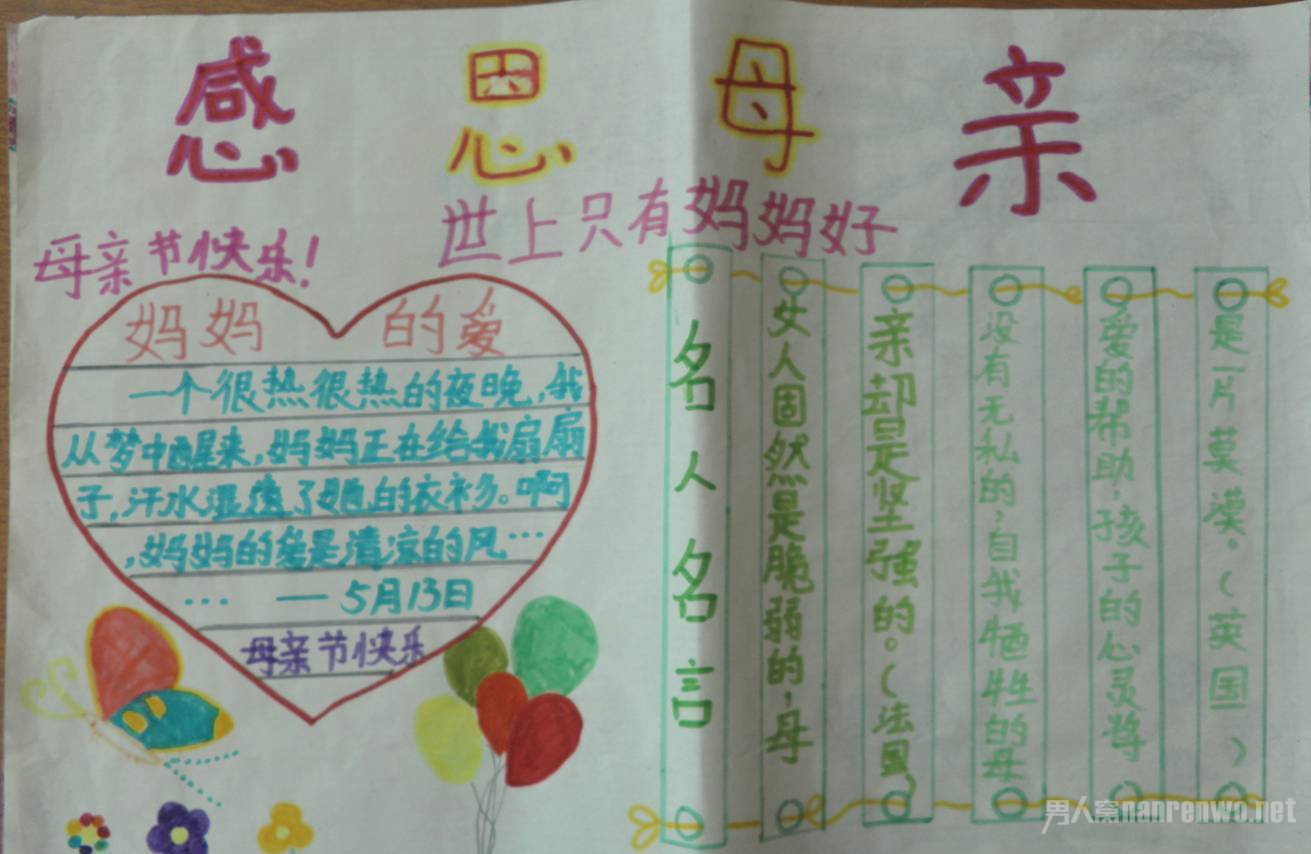 感恩母亲
世上只有妈妈好
母亲节快乐!
妈妈的爱
一个很热很热的夜晚,我
从梦中醒来,妈妈正在给我扇扇
子,汗水湿透了她的衣衫。啊
,妈妈的爱是清凉的风…
… — 5月13日
母亲节快乐
名人名言
女人固然是脆弱的,母
亲却是坚强的。(法国)
没有无私的,自我牺牲的母
爱的帮助,孩子的心灵将
是一片莫漠.(英国)
男人窝nanrenwo.net